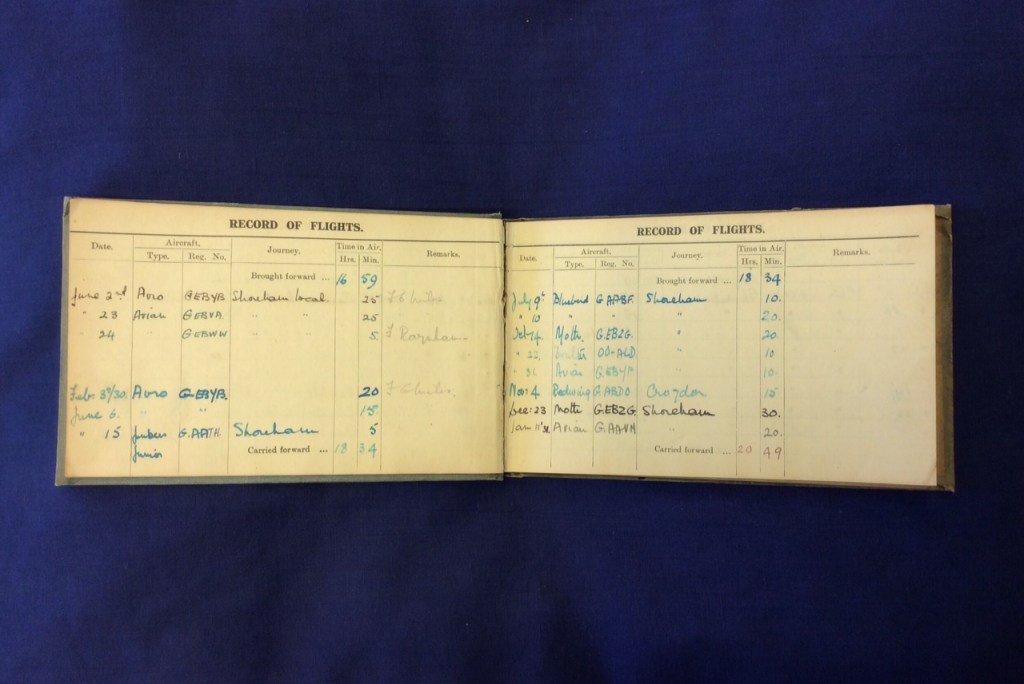 RECORD OF FLIGHTS.
Date. Aircraft. Journey. Time in Air. Remarks.
Type. Reg. No. Hrs. Min.
Brought forward ... 16 59
June 2nd Avro GEBYB Shoreham Local. 25
" 23 Avian GEBVA. " " 25
" 24 " GEBWW " 5.
Feb: 3rd/30. Avro GEBYB. 20
June 6. " " 15
" 15 Junkers G.AATH Shoreham 5
Junior
Carried forward ... 18 34
RECORD OF FLIGHTS.
Date. Aircraft. Journey. Time in Air. Remarks.
Type. Reg. No. Hrs. Min.
Brought forward ... 18 34
July 9th Bluebird G AABF. Shoreham 10.
" 10 " 20.
Oct 14. Moth. G.EBZG. " 20.
" 22. OO-ALD " 10
" 31. Avian GEBYP " 10.
Nov: 4 GABDO Croydon 15
Dec: 23 Moth G.EBZG Shoreham 30.
Jan 11th 31. Avian G.AAVM " 20.
Carried forward ... 20 49